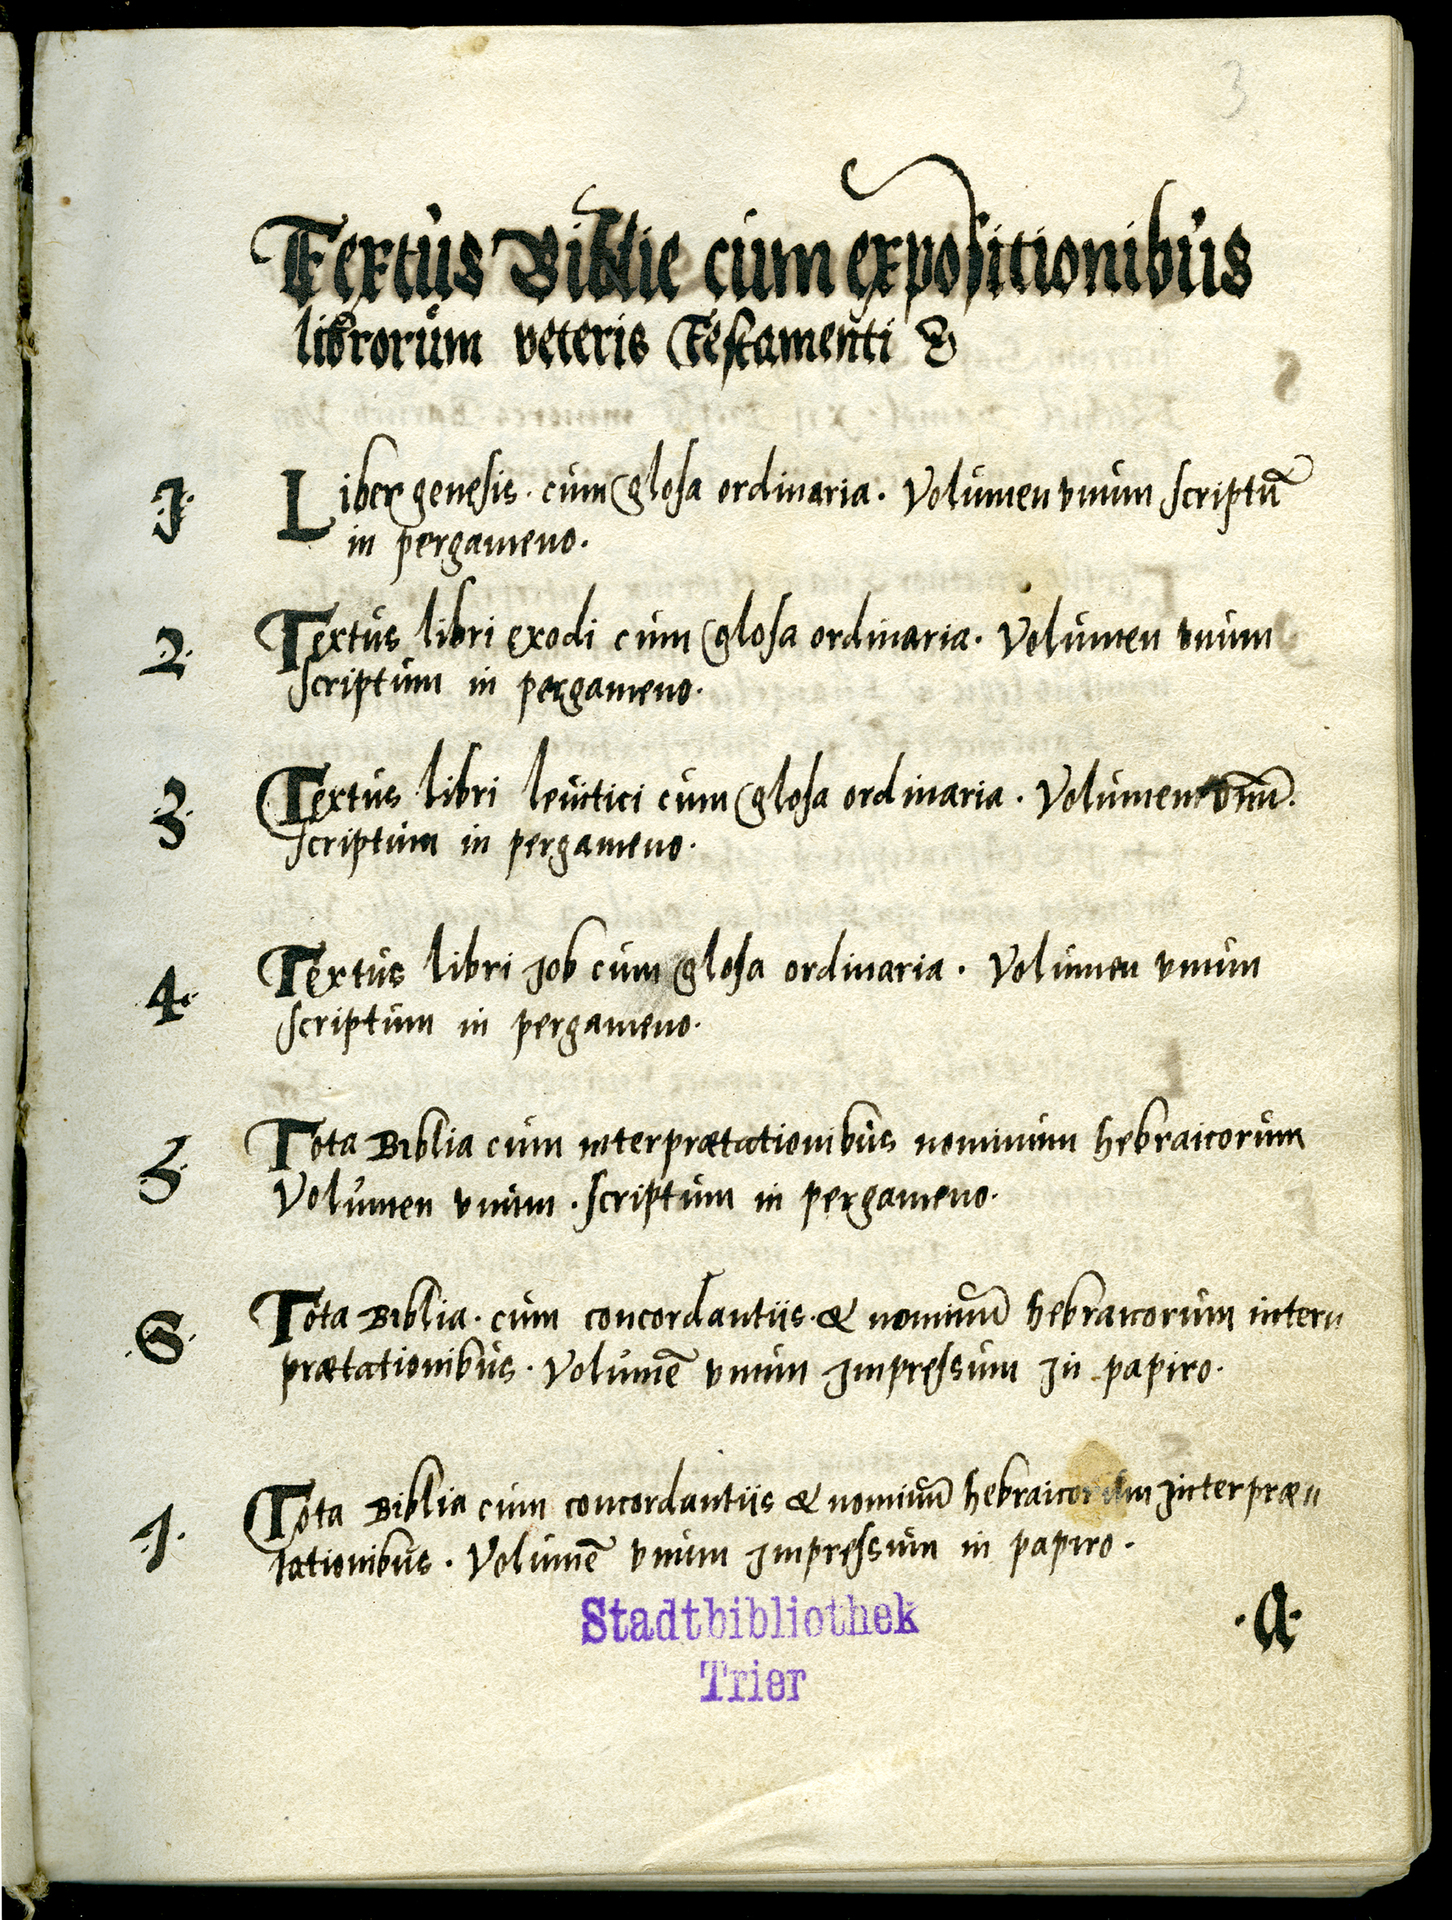 3
Textus Biblie cum expositionibus
librorum veteris Testamenti
1 Liber genesis. cum glosa ordinaria. Volumen vnum scriptū
in pergameno.
2 Textus libri exodi cum glosa ordinaria. Volumen vnum
scriptum in pergameno.
3 Textus libri leuitici cum glosa ordinaria. Volumen vnū.
scriptum in pergameno.
4 Textus libri Job cum glosa ordinaria. Volumen vnum
scriptum in pergameno.
5 Tota Biblia cum interprætationibus nominum hebraicorum
Volumen vnum. scriptum in pergameno.
6 Tota Biblia. cum concordantiis. & nominū hebraicorum inter=
prætationibus. Volumē vnum Impressum In papiro.
7 Tota Biblia cum concordantiis & nominū hebraicorum Interpræ=
tationibus. Volumē vnum Impressum in papiro.
.A.
Stadtbibliothek
Trier